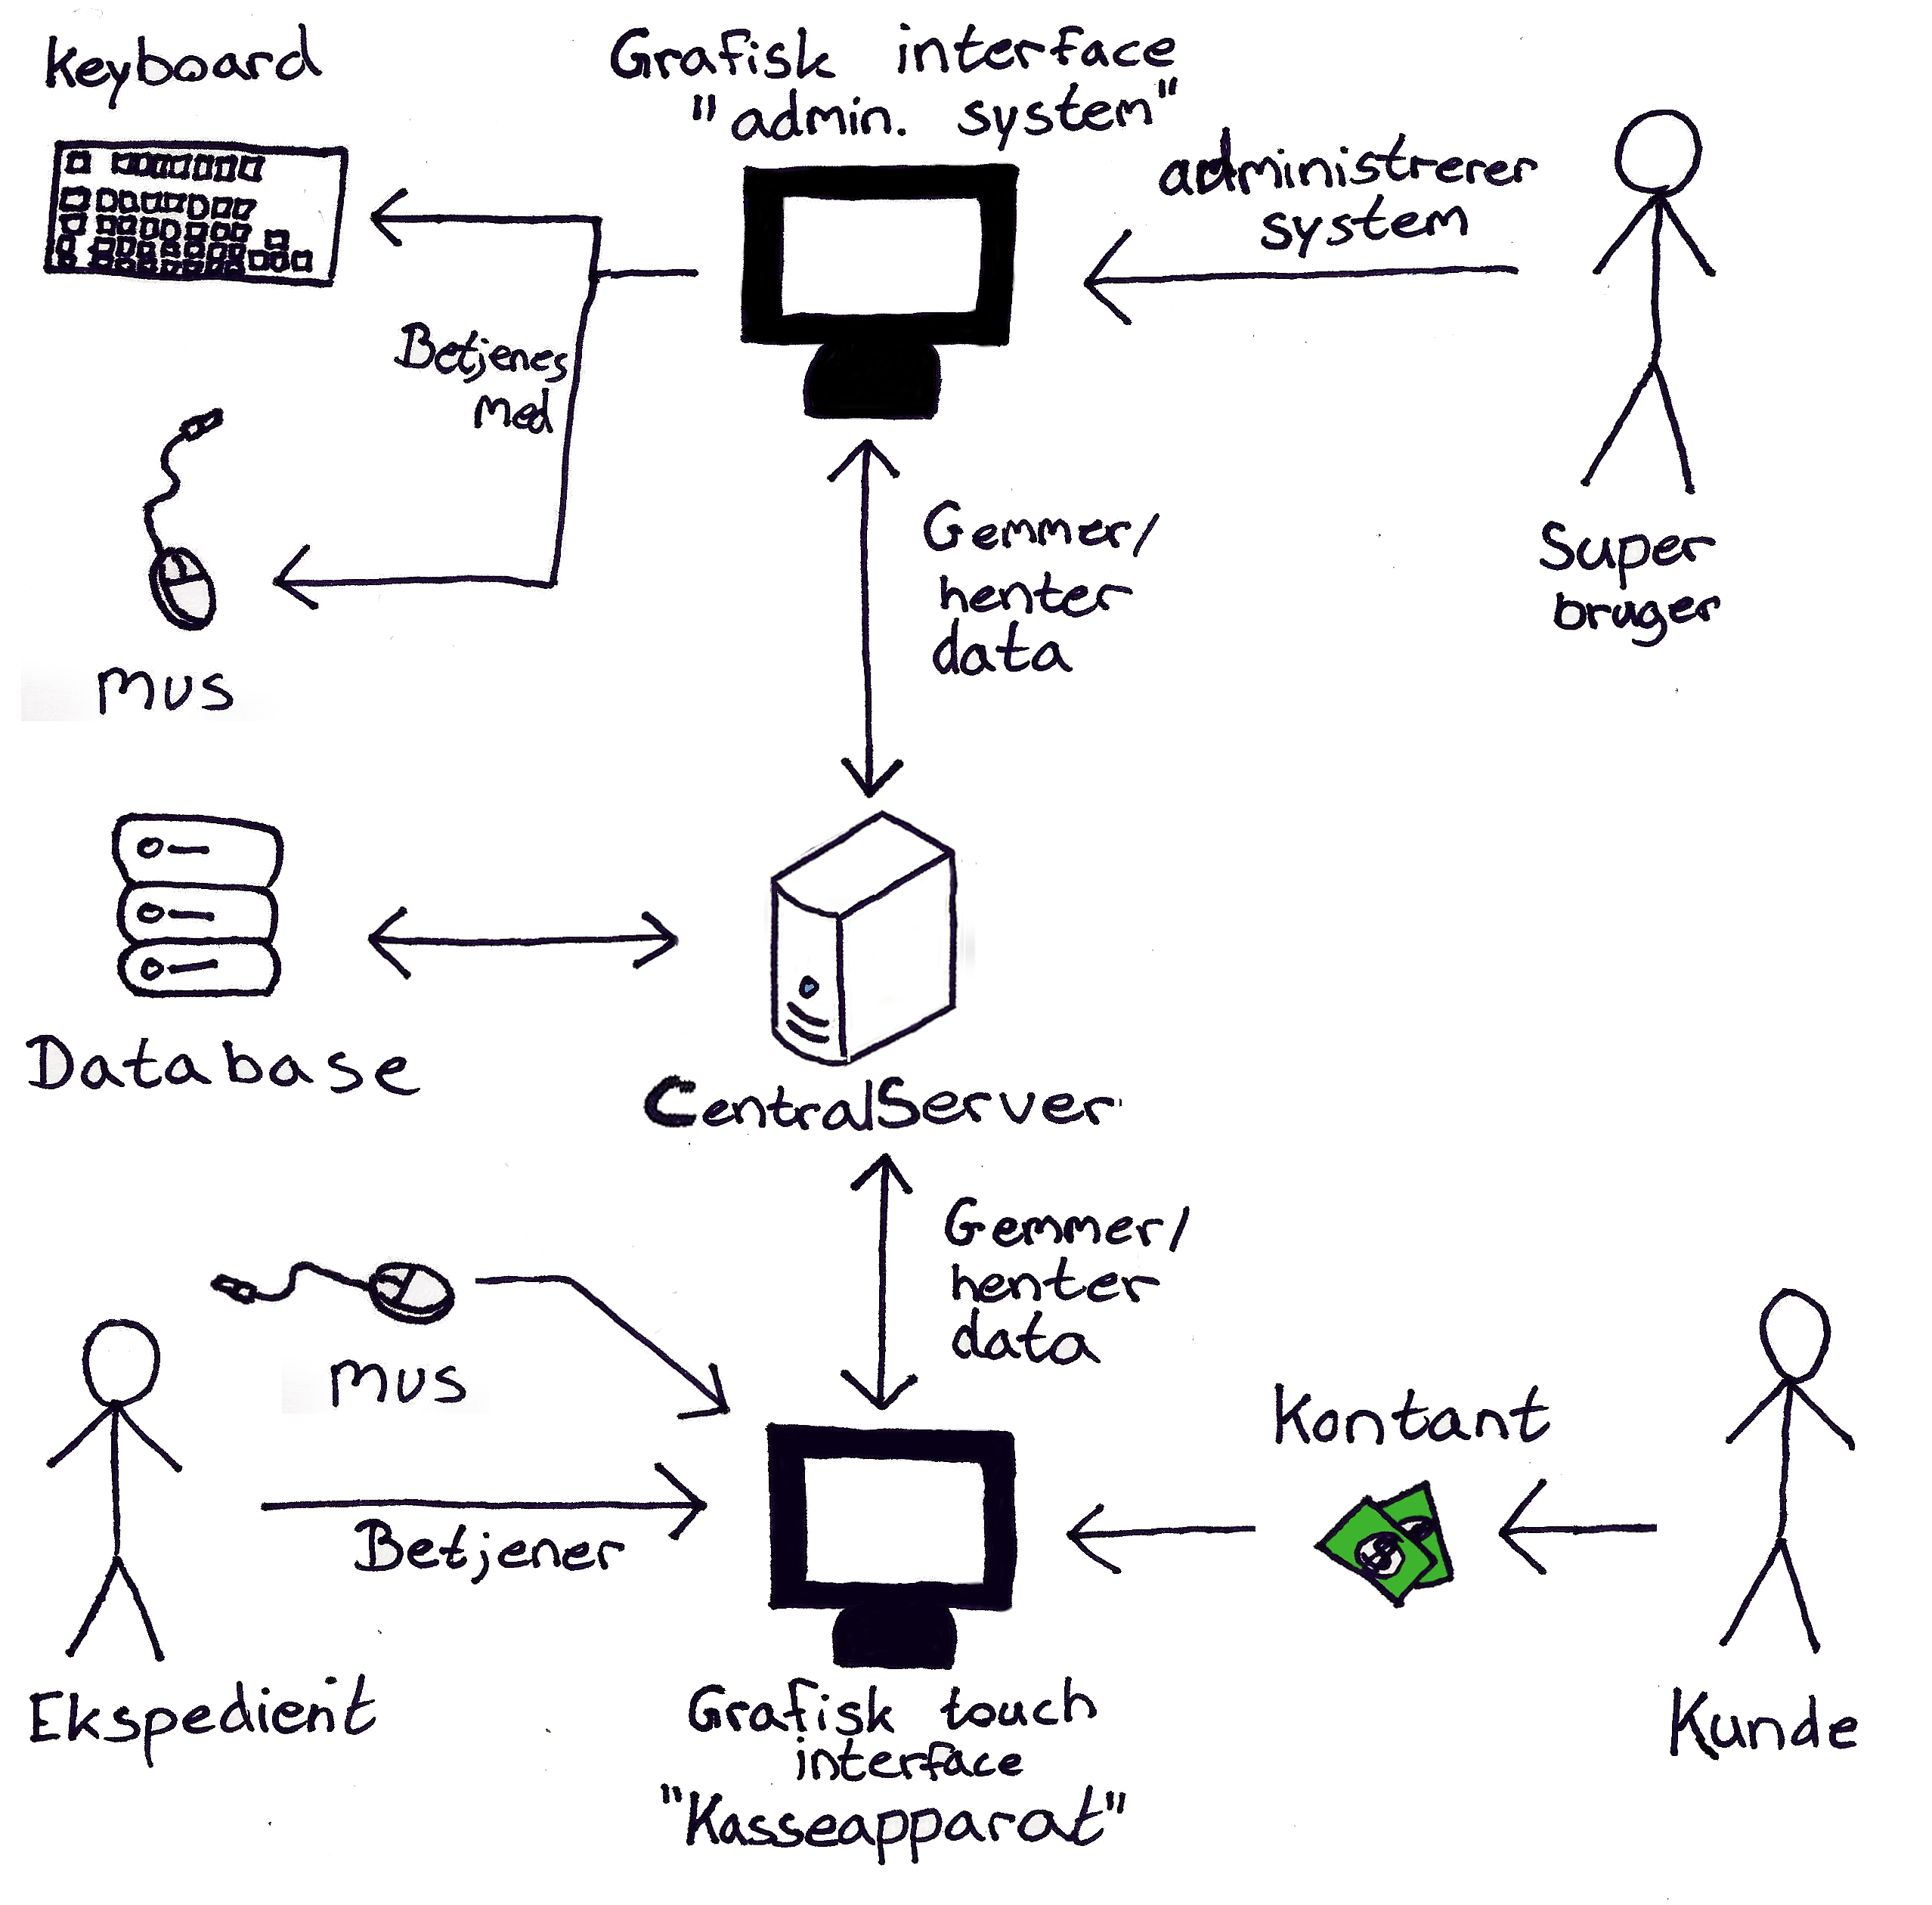 Keyboard
Grafisk interface
"admin. system"
administrerer
system
Betjenes
med
mus
Gemmer/
henter
data
Super
bruger
Database
CentralServer
Gemmer/
henter
data
mus
Betjener
Kontant
$
Ekspedient
Grafisk touch
interface
"Kasseapparat"
Kunde